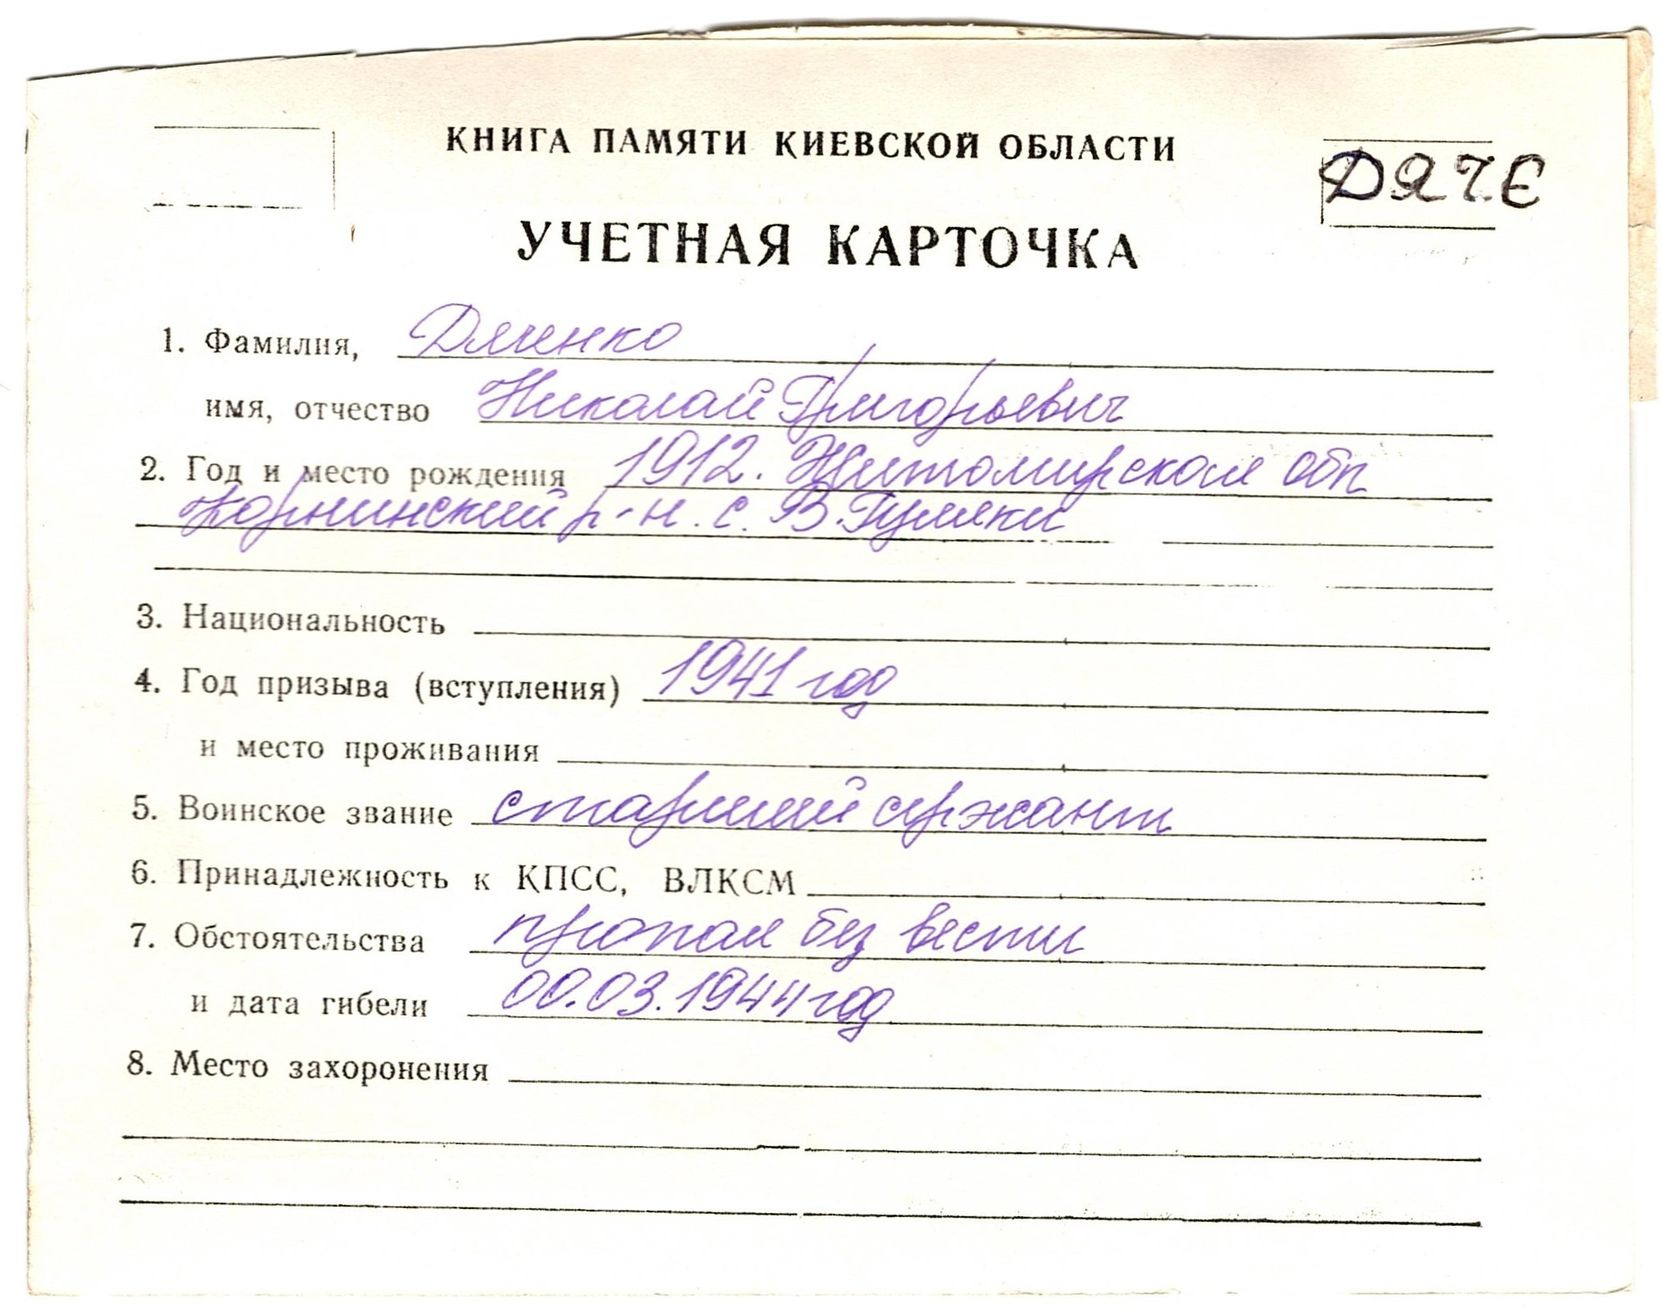 КНИГА ПАМЯТИ КИЕВСКОЙ ОБЛАСТИ
ДЯЧЕ
УЧЕТНАЯ КАРТОЧКА
1. Фамилия, Дяченко
имя, отчество Николай Григорьевич
2. Год и место рождения 1912. Житомирская обл
Корнинский р-н. с. В. Гуляки
3. Национальность
4. Год призыва (вступления) 1941 год
и место проживания
5. Воинское звание старший сержант
6. Принадлежность к КПСС, ВЛКСМ
7. Обстоятельства пропал без вести
и дата гибели 00.03.1944 год
8. Место захоронения